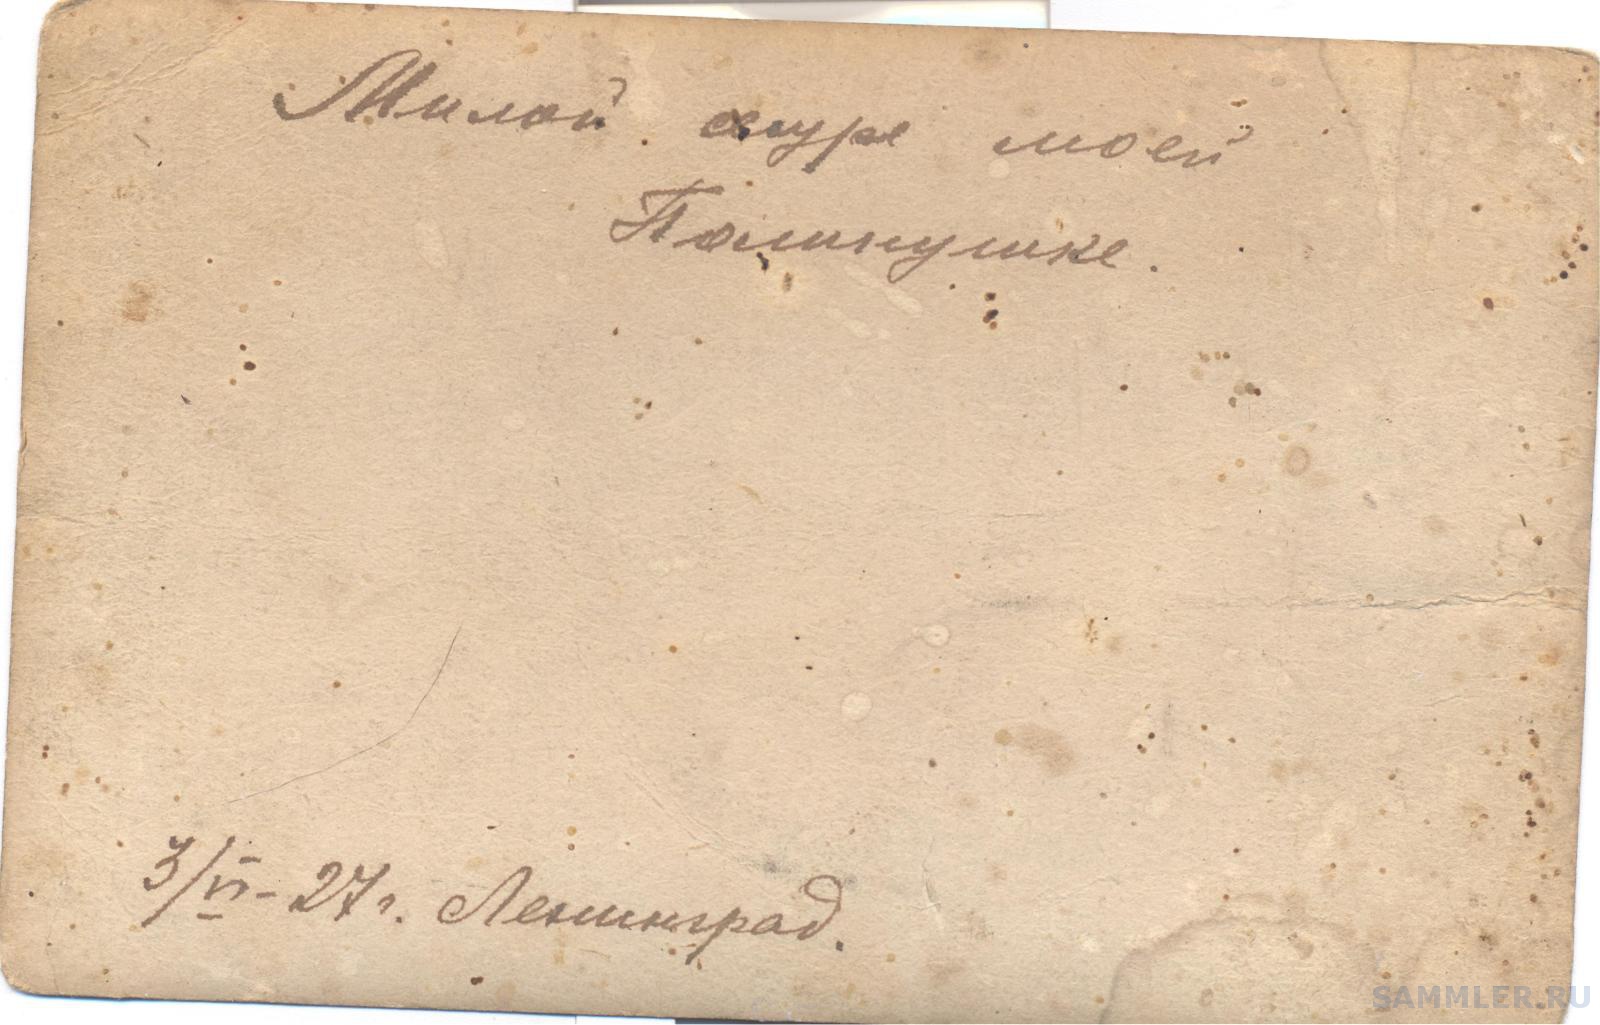 Милой моей
Полинушке.
3/VI - 27 г. Ленинград.
SAMMLER.RU